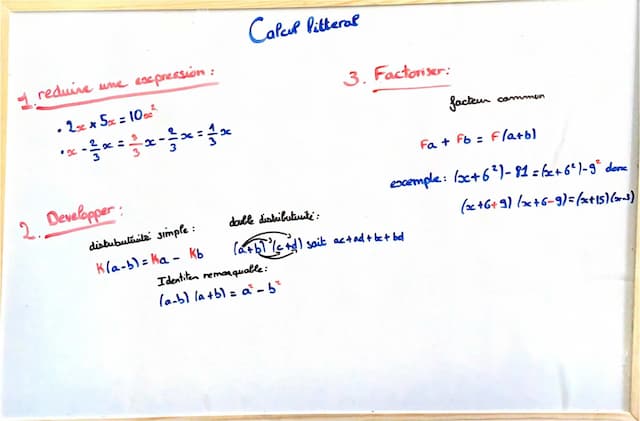 Calcul litteral
1. reduire une expression :
• 2x × 5x = 10x²
• x - 2/3 x = 3/3 x - 2/3 x = 1/3 x
2. Developper :
distributivité simple :
K(a-b) = Ka - Kb
double distributivité :
(a+b) (c+d) soit ac+ad+bc+bd
Identiten remarquable :
(a-b) (a+b) = a² - b²
3. Factoriser :
facteur commun
Fa + Fb = F(a+b)
exemple : (x+6²) - 81 = (x+6²) - 9² donc
(x+6+9) (x+6-9) = (x+15)(x-3)